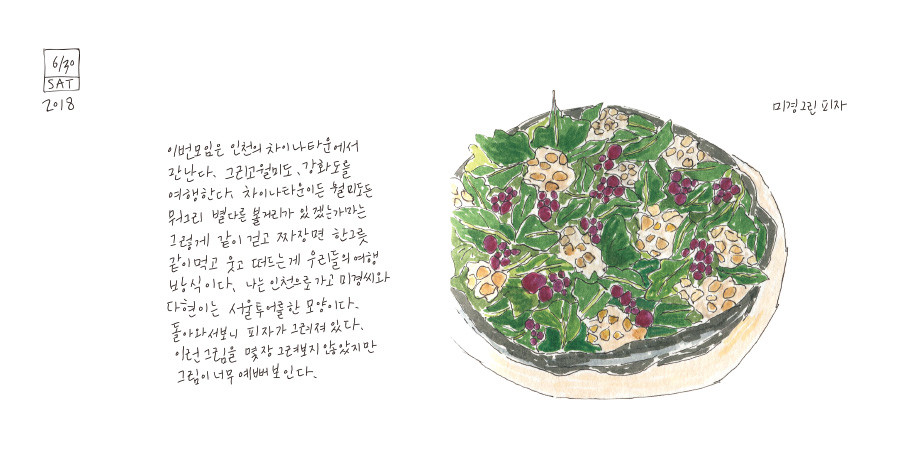 6/30
SAT
2018
미경그린 피자
이번모임은 인천의 차이나타운에서
잔난다. 그리고 월미도, 강화도를
여행한다. 차이나타운이든 월미도든
뭐그리 별다른 볼거리가 있겠는가마는
그렇게 같이 걷고 짜장면 한그릇
같이먹고 웃고 떠드는게 우리들의 여행
방식이다. 나는 인천으로 가고 미경씨와
다현이는 서울투어를한 모양이다.
돌아와서보니 피자가 그려져 있다.
이런그림을 몇장 그려보지 않았지만
그림이 너무 예뻐보인다.